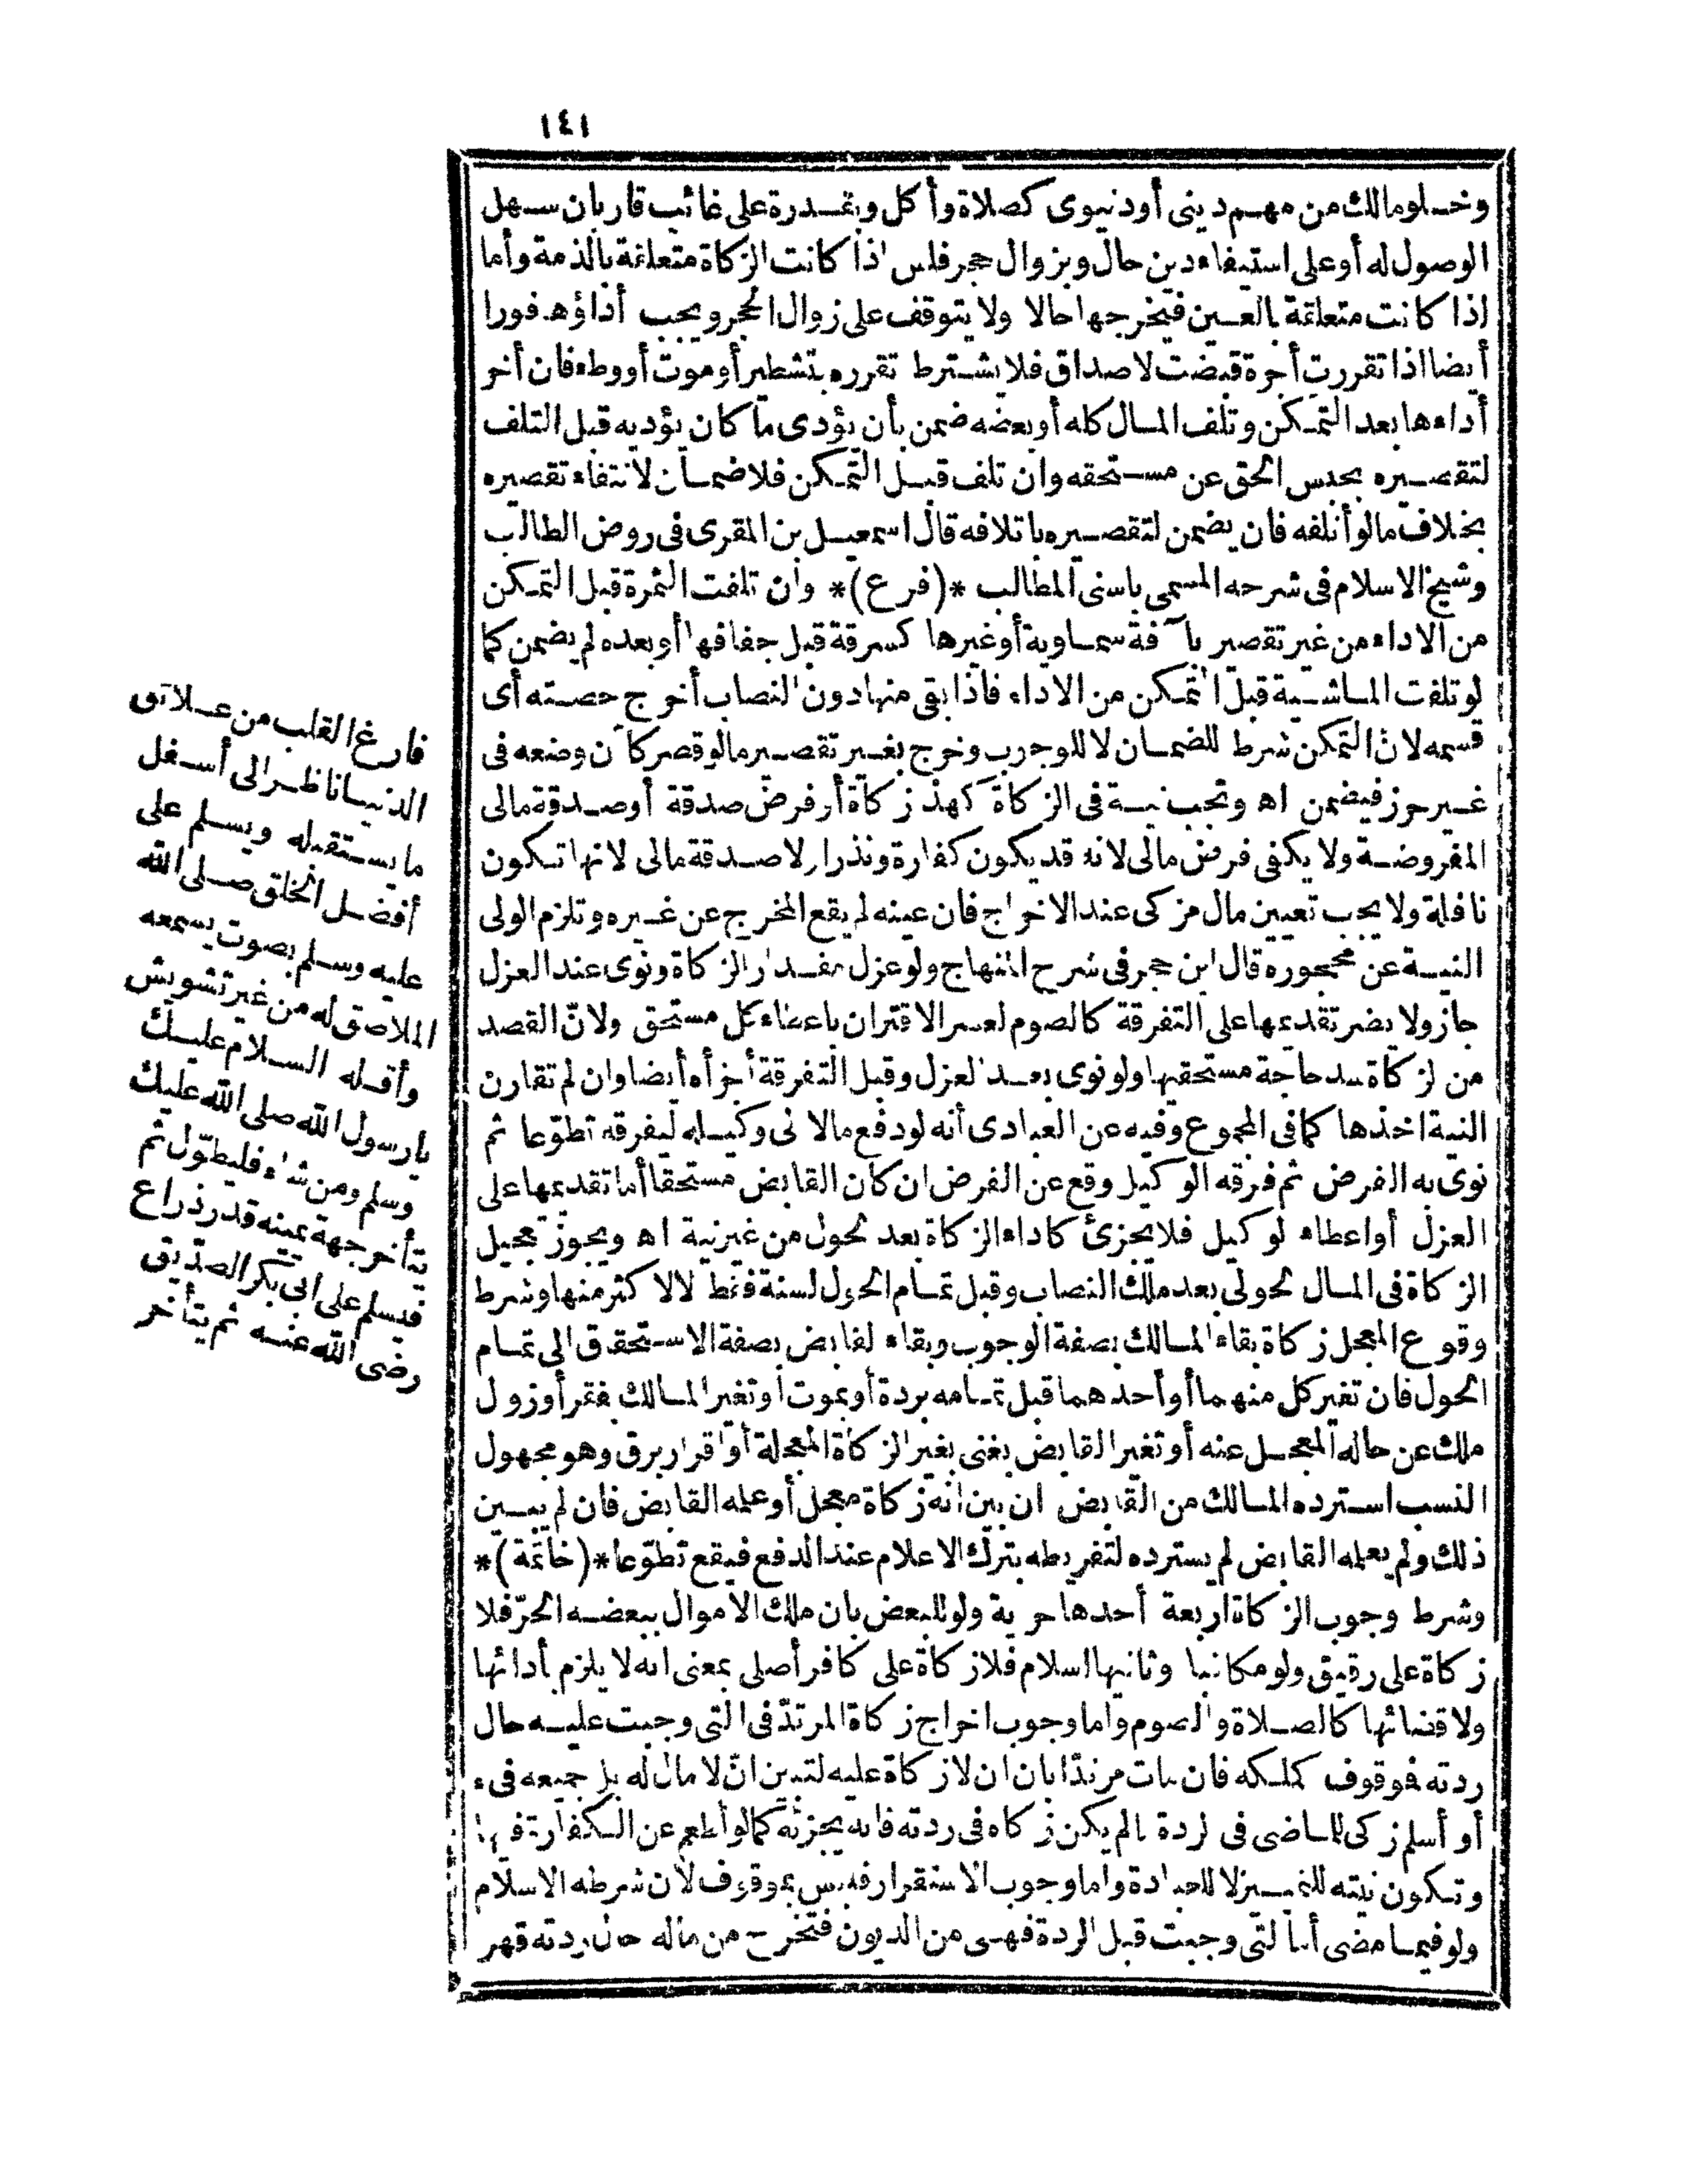 ١٤١
وخلو مالك من مهم دينى أودنيوى كصلاة وأكل وبقدرة على غائب قار بان سهل
الوصول له أو على استيفاء دين حال وبزوال حجر فلس اذا كانت الزكاة متعلقة بالذمة وأما
اذا كانت متعلقة بالعين فيخرجها حالا ولا يتوقف على زوال الحجر ويجب أداؤها فورا
أيضا اذا تقررت أجرة قبضت لا صداق فلا يشترط تقرره بتشطير أو موت أو وطء فان أخر
أداءها بعد التمكن وتلف المال كله أو بعضه ضمن بأن يؤدى ما كان يؤديه قبل التلف
لتقصيره بحبس الحق عن مستحقه وان تلف قبل التمكن فلا ضمان لانتفاء تقصيره
بخلاف مالو أتلفه فان يضمن لتقصيره باتلافه قال اسمعيل بن المقرى فى روض الطالب
وشيخ الاسلام فى شرحه المسمى باسنى المطالب *(فرع)* وان تلفت الثمرة قبل التمكن
من الاداء من غير تقصير بآفة سماوية أو غيرها كسرقة قبل جفافها أو بعده لم يضمن كما
لو تلفت الماشية قبل التمكن من الاداء فاذا بقى منها دون النصاب أخرج حصته أى
قسمه لان التمكن شرط للضمان لا للوجوب وخرج بغير تقصير مالو قصر كأن وضعه فى
غير حرز فيضمن اه وتجب نية فى الزكاة كهذ زكاة أو فرض صدقة أو صدقة مالى
المفروضة ولا يكفى فرض مالى لانه قد يكون كفارة ونذرا ولا صدقة مالى لانها تكون
نافلة ولا يجب تعيين مال مزكى عند الاخراج فان عينه لم يقع المخرج عن غيره وتلزم الولى
النية عن محجوره قال ابن حجر فى شرح المنهاج ولو عزل مقدار الزكاة ونوى عند العزل
جاز ولا يضر تقديمها على التفرقة كالصوم لعسر الاقتران باعطاء كل مستحق ولان القصد
من لزكاة سد حاجة مستحقيها ولو نوى بعد العزل وقبل التفرقة أجزأه أيضا وان لم تقارن
النية اخذها كما فى المجموع وفيه عن العبادى أنه لو دفع مالا الى وكيله ليفرقه تطوّعا ثم
نوى به الفرض ثم فرقه الوكيل وقع عن الفرض ان كان القابض مستحقا أما تقديمها على
العزل أو اعطاء لوكيل فلا يجزئ كاداء الزكاة بعد لحول من غير نية اه ويجوز تعجيل
الزكاة فى المال لحولى بعد ملك النصاب وقبل تمام الحول لسنة فقط لا لاكثر منها وشرط
وقوع المعجل زكاة بقاء المالك بصفة الوجوب وبقاء لقابض بصفة الاستحقاق الى تمام
الحول فان تغير كل منهما أو أحدهما قبل تمامه بردة أو بموت أو تغير المالك بفقر أو زول
ملك عن حاله المعجل عنه أو تغير القابض بغنى بغير الزكاة المعجلة أو اقرار برق وهو مجهول
النسب استرده المالك من القابض ان بين انه زكاة معجل أو علمه القابض فان لم يبين
ذلك ولم يعلمه القابض لم يسترده لتفريطه بترك الاعلام عند الدفع فيقع تطوّعا *(خاتمة)*
وشرط وجوب الزكاة اربعة أحدها حرية ولو للبعض بان ملك الاموال ببعضه الحرّ فلا
زكاة على رقيق ولو مكاتبا وثانيها اسلام فلا زكاة على كافر أصلى بمعنى انه لا يلزم بأدائها
ولا قضائها كالصلاة والصوم واما وجوب اخراج زكاة المرتدّ فى التى وجبت عليه حال
ردته فموقوف كملكه فان مات مرتدّا بان ان لا زكاة عليه لتبين انّ لا مال له بل جميعه فىء
أو أسلم زكى للماضى فى لردة مالم يكن زكاه فى ردته فانه يجزئه كما لو أطعم عن الكفارة فيها
وتكون نيته للتمييز لا للعبادة واما وجوب الاستقرار فليس بموقوف لأن شرطه الاسلام
ولو فيما مضى أما لتى وجبت قبل الردة فهى من الديون فتخرج من ماله حال ردته قهر
فارغ القلب من علائق
الدنيا ناظرا الى أسفل
ما يستقبله ويسلم على
أفضل الخلق صلى الله
عليه وسلم بصوت يسمعه
الملاصق له من غير تشويش
وأقله السلام عليك
يارسول الله صلى الله عليك
وسلم ومن شاء فليطوّل ثم
يتأخر جهة يمينه قدر ذراع
فيسلم على ابى بكر الصدّيق
رضى الله عنه ثم يتأخر